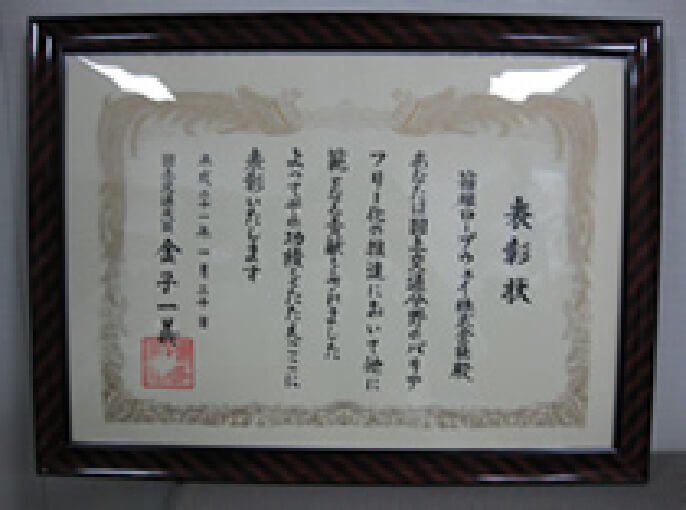 表彰状
箱根ロープウェイ株式会社殿
あなたは国土交通分野のバリア
フリー化の推進において他に
範となる貢献をされました
よってその功績をたたえここに
表彰いたします
平成二十一年一月二十日
国土交通大臣 金子一義